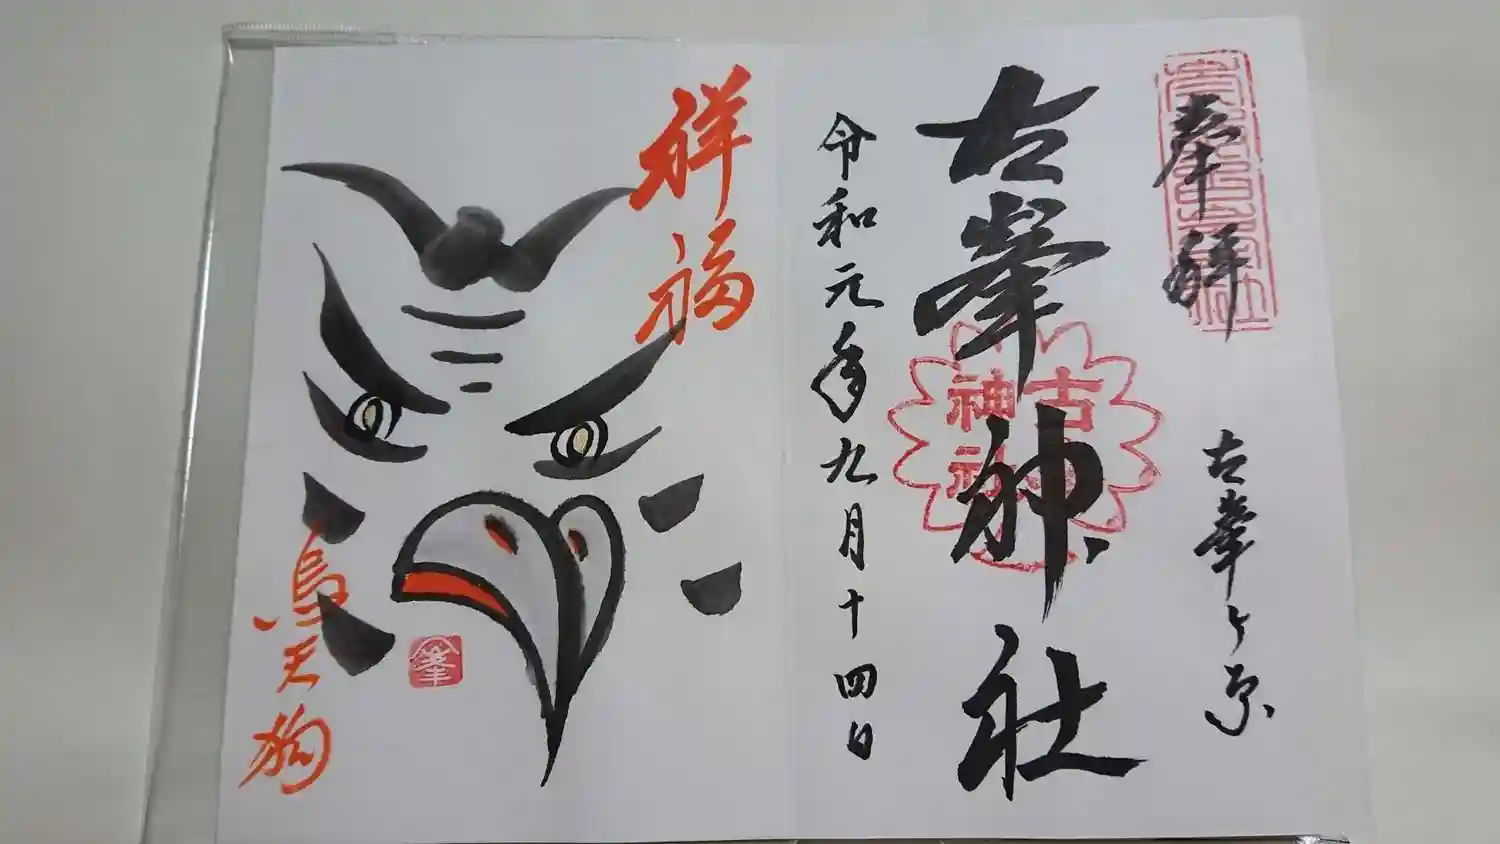 奉拝
古峯ヶ原
古峯神社
古峯神社
令和元年九月十四日
祥福
烏天狗
峯